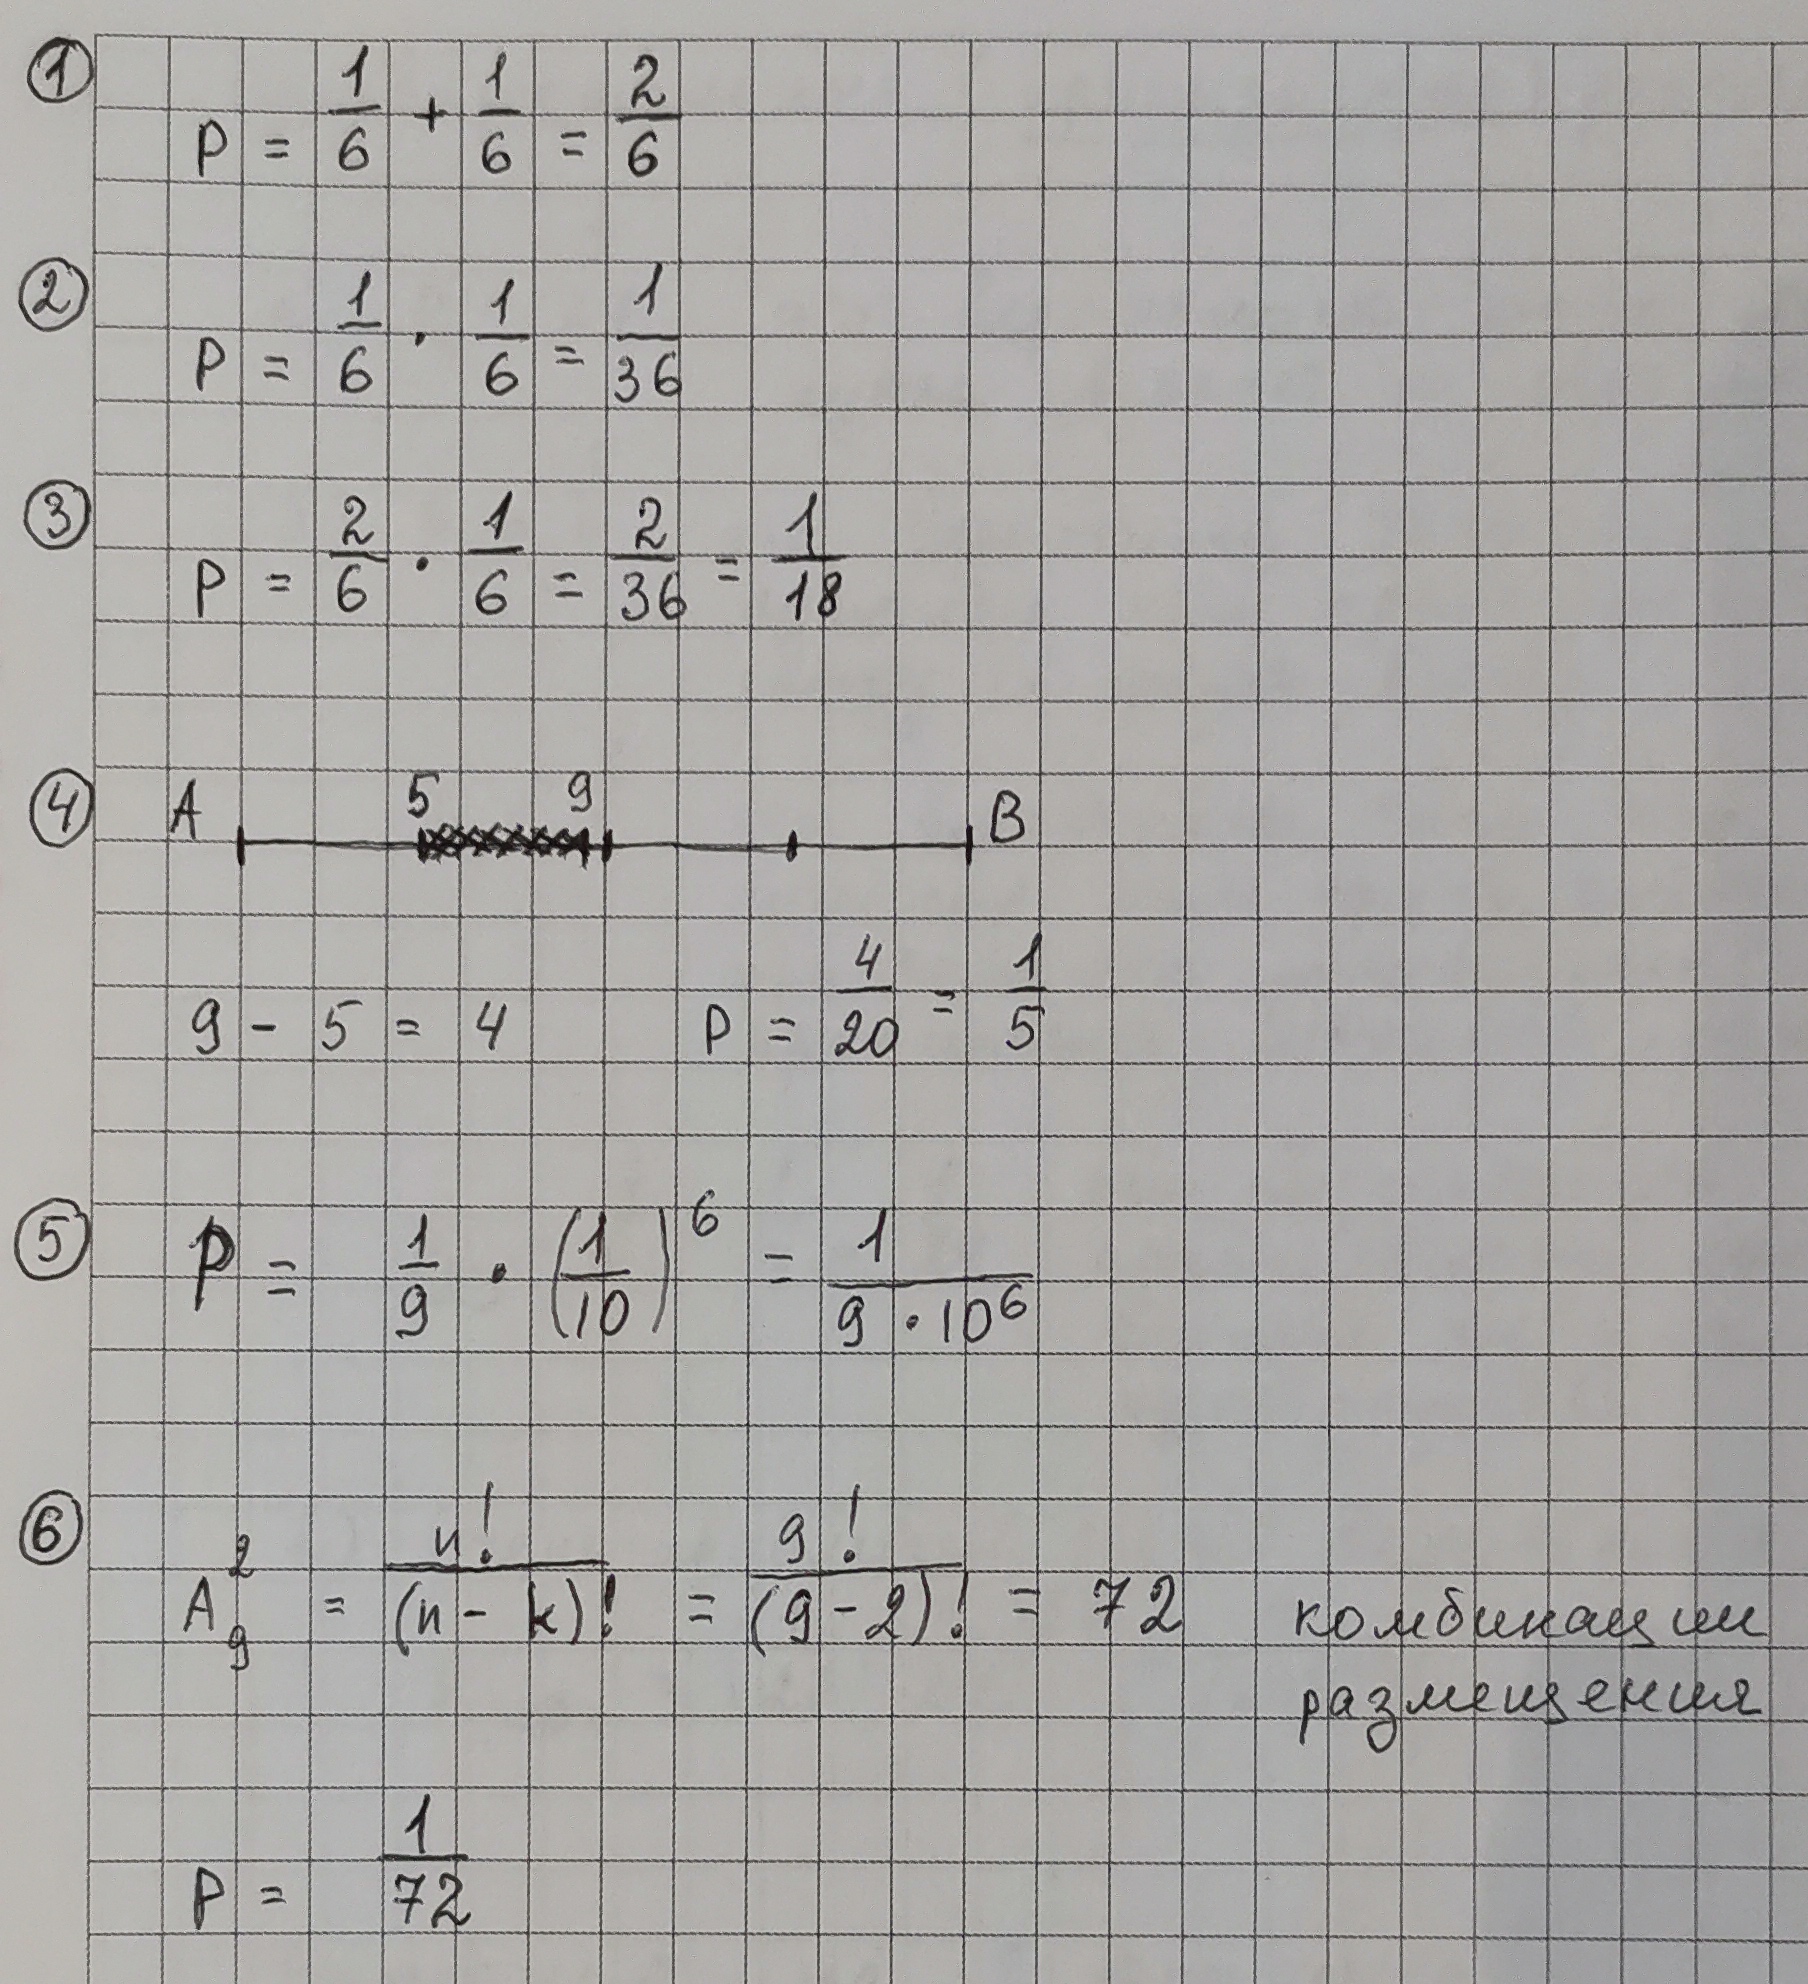 ① P = 1/6 + 1/6 = 2/6
② P = 1/6 · 1/6 = 1/36
③ P = 2/6 · 1/6 = 2/36 = 1/18
④ A 5 9 B
9 - 5 = 4 P = 4/20 = 1/5
⑤ P = 1/9 · (1/10)^6 = 1/(9 · 10^6)
⑥ A_9^2 = n!/(n - k)! = 9!/(9 - 2)! = 72 комбинации
размещения
P = 1/72